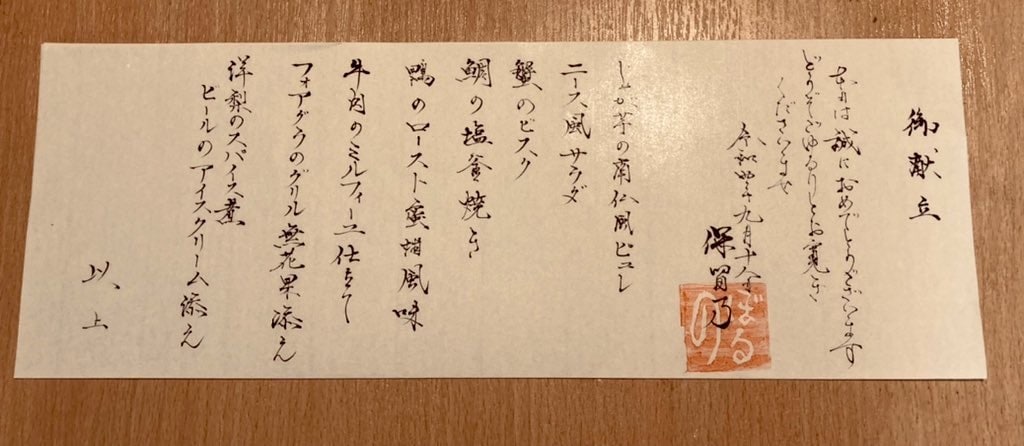 御献立
本日は誠におめでとうございます
どうぞごゆるりとお寛ぎ
くださいませ
令和四年九月十八日
保留乃
ぼるの

じゃが芋の南仏風ピュレ
ニース風サラダ
蟹のビスク
鯛の塩釜焼き
鴨のロースト蜜柑風味
牛肉のミルフィーユ仕立て
フォアグラのグリル無花果添え
洋梨のスパイス煮
ビールのアイスクリーム添え
以上